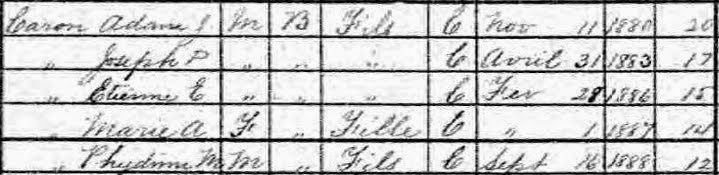 Caron Adam J. M B Fils C Nov 11 1880 20
" Joseph P " " " C Avril 31 1883 17
" Etienne E " " " C Fev 28 1886 15
" Marie A F " Fille C " 1 1887 14
" Phydime M M " Fils C Sept 16 1888 12